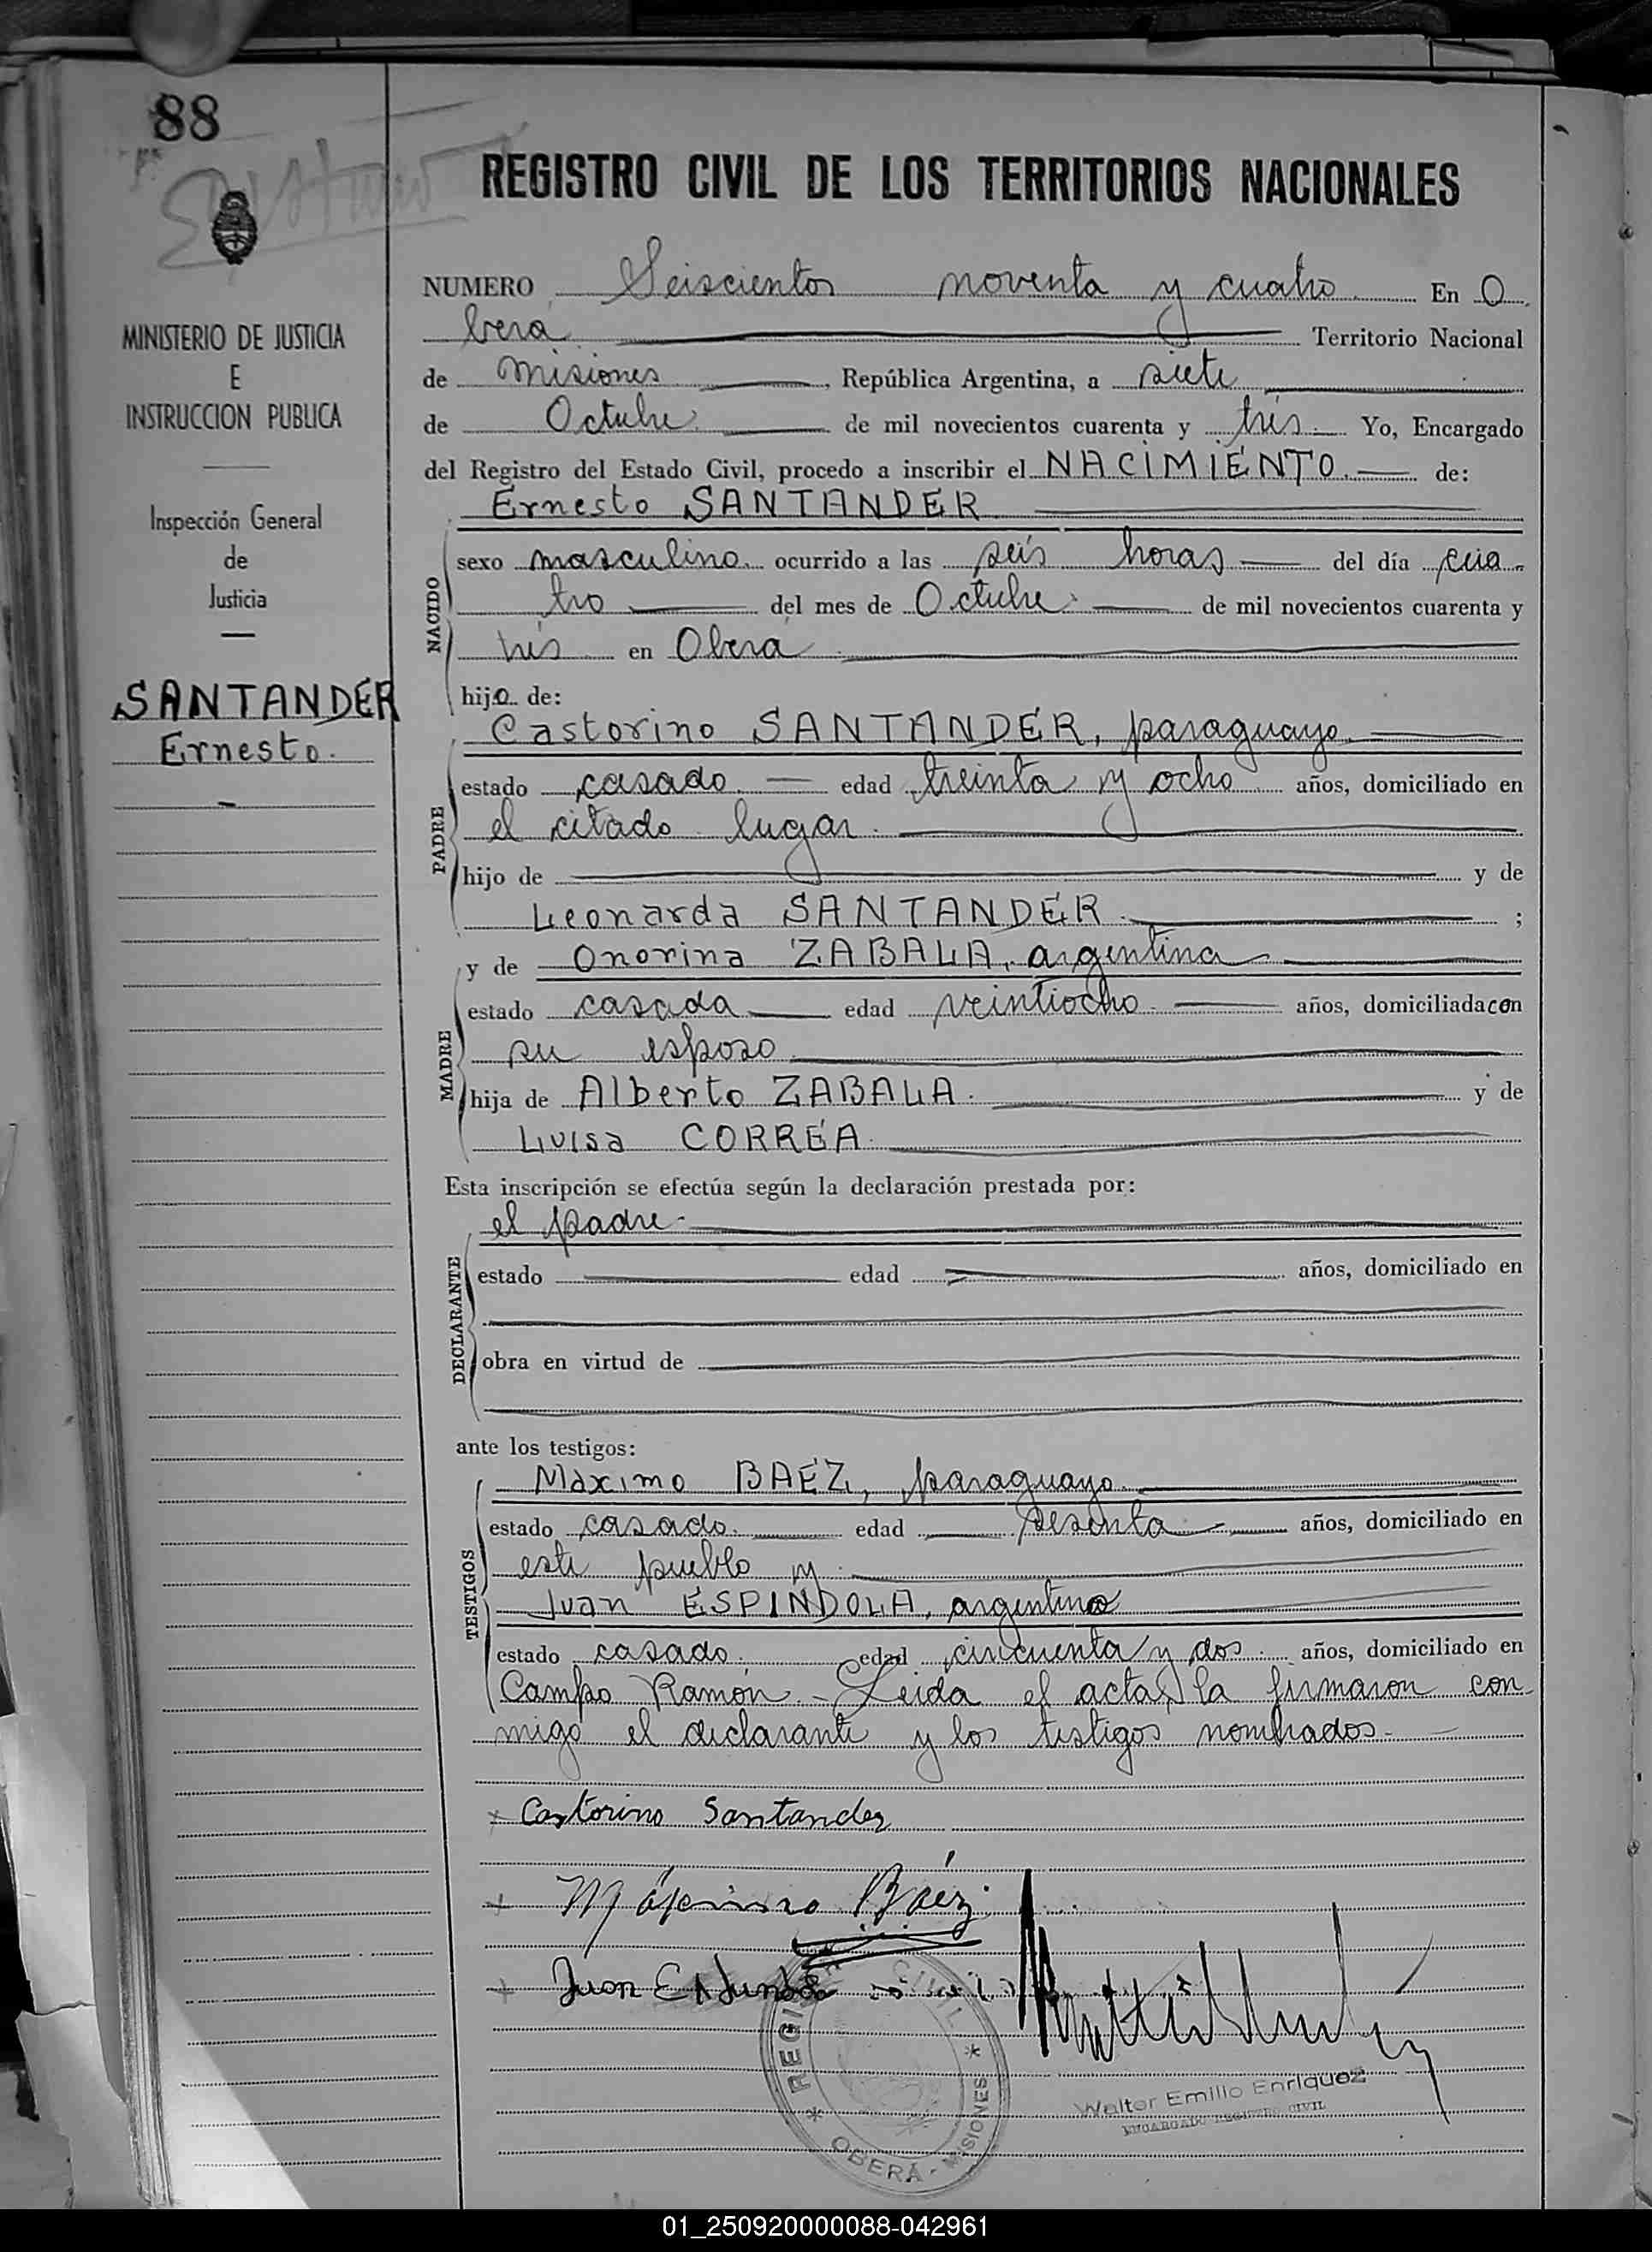 88
REGISTRO CIVIL DE LOS TERRITORIOS NACIONALES
MINISTERIO DE JUSTICIA
E
INSTRUCCION PUBLICA
Inspección General
de
Justicia
SANTANDER
Ernesto.
NUMERO Seiscientos noventa y cuatro En O
bera Territorio Nacional
de Misiones, República Argentina, a siete
de Octubre de mil novecientos cuarenta y trés Yo, Encargado
del Registro del Estado Civil, procedo a inscribir el NACIMIENTO de:
Ernesto SANTANDER
NACIDO
sexo masculino ocurrido a las seis horas del día cua
tro del mes de Octubre de mil novecientos cuarenta y
trés en Oberá
hijo de:
Castorino SANTANDER, paraguayo
PADRE
estado casado edad treinta y ocho años, domiciliado en
el citado lugar.
hijo de y de
Leonarda SANTANDER ;
y de Onorina ZABALA, argentina
MADRE
estado casada edad veintiocho años, domiciliada con
su esposo
hija de Alberto ZABALA. y de
Luisa CORREA
Esta inscripción se efectúa según la declaración prestada por:
el padre
DECLARANTE
estado edad años, domiciliado en
obra en virtud de
ante los testigos:
Máximo BAEZ, paraguayo
TESTIGOS
estado casado edad sesenta años, domiciliado en
este pueblo y
Juan ESPINDOLA, argentino
estado casado edad cincuenta y dos años, domiciliado en
Campo Ramón.- Leida el acta, la firmaron con
migo el declarante y los testigos nombrados.
Castorino Santander
Máximo Báez
Juan
REGISTRO CIVIL
OBERÁ - MISIONES
Walter Emilio Enriquez
ENCARGADO REGISTRO CIVIL
01_250920000088-042961